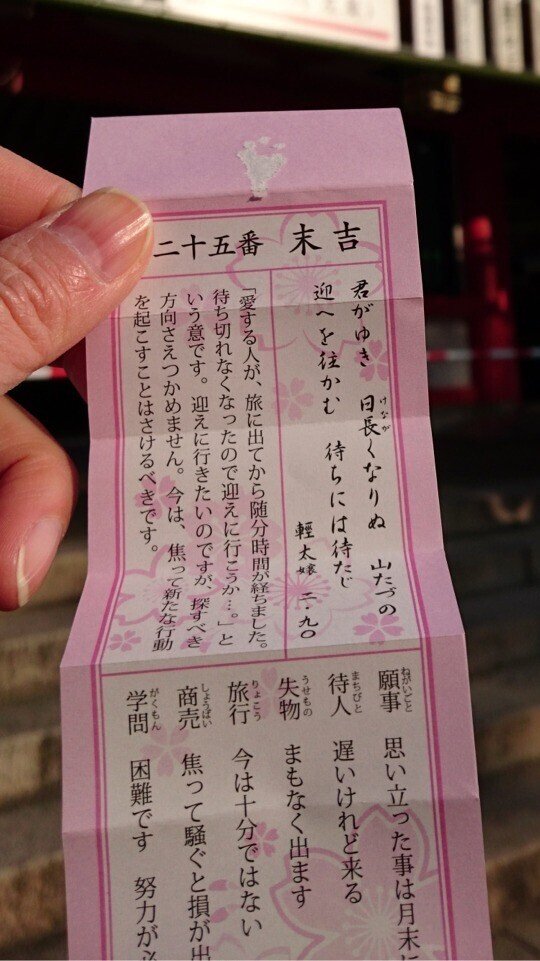 二十五番 末吉
君がゆき 日長くなりぬ 山たづの
けなが
迎へを往かむ 待ちには待たじ
輕太娘 二・九〇
「愛する人が、旅に出てから随分時間が経ちました。
待ち切れなくなったので迎えに行こうか…。」と
いう意です。迎えに行きたいのですが、探すべき
方向さえつかめません。今は、焦って新たな行動
を起こすことはさけるべきです。
願事 思い立った事は月末に
ねがいごと
待人 遅いけれど来る
まちびと
失物 まもなく出ます
うせもの
旅行 今は十分ではない
りょこう
商売 焦って騒ぐと損が出
しょうばい
学問 困難です 努力が必
がくもん